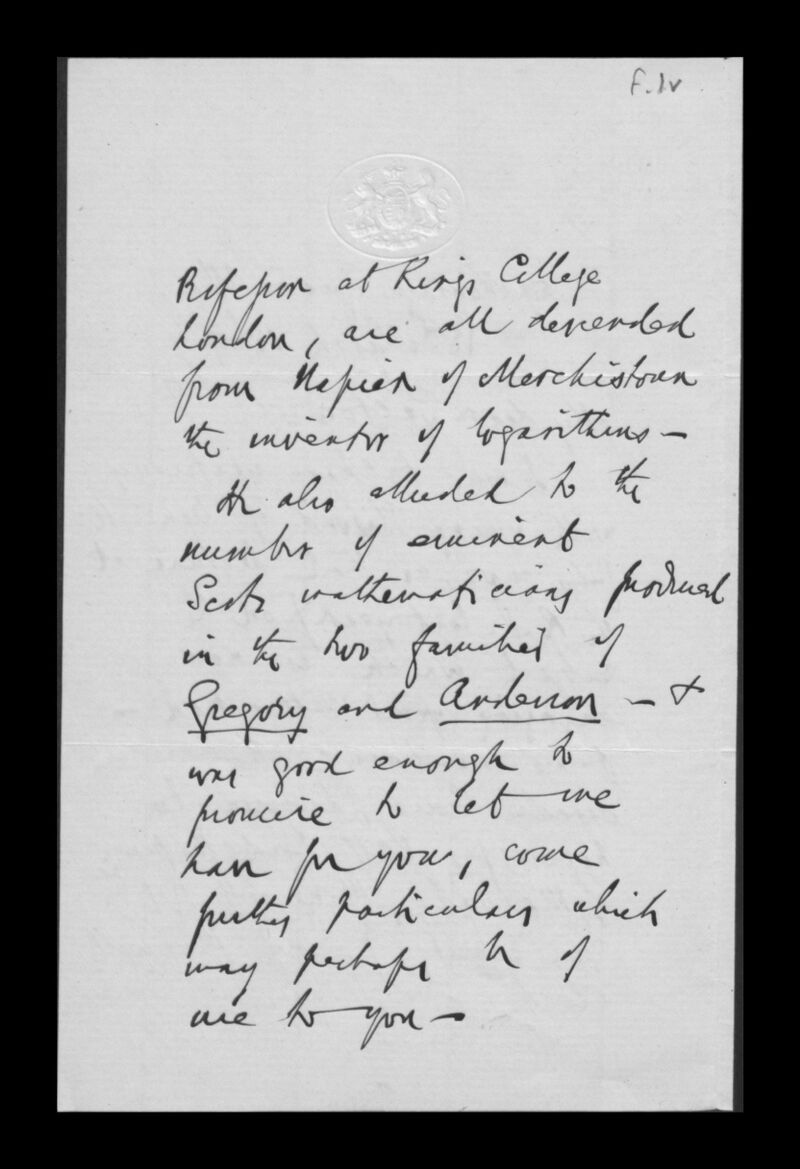 F.1v
Professor at Kings College
London, are all descended
from Napier of Merchistoun
the inventor of logarithms -
He also alluded to the
number of eminent
Scots mathematicians produced
in the two families of
Gregory and Anderson - &
was good enough to
promise to let me
have for you, some
further particulars which
may perhaps be of
use to you -